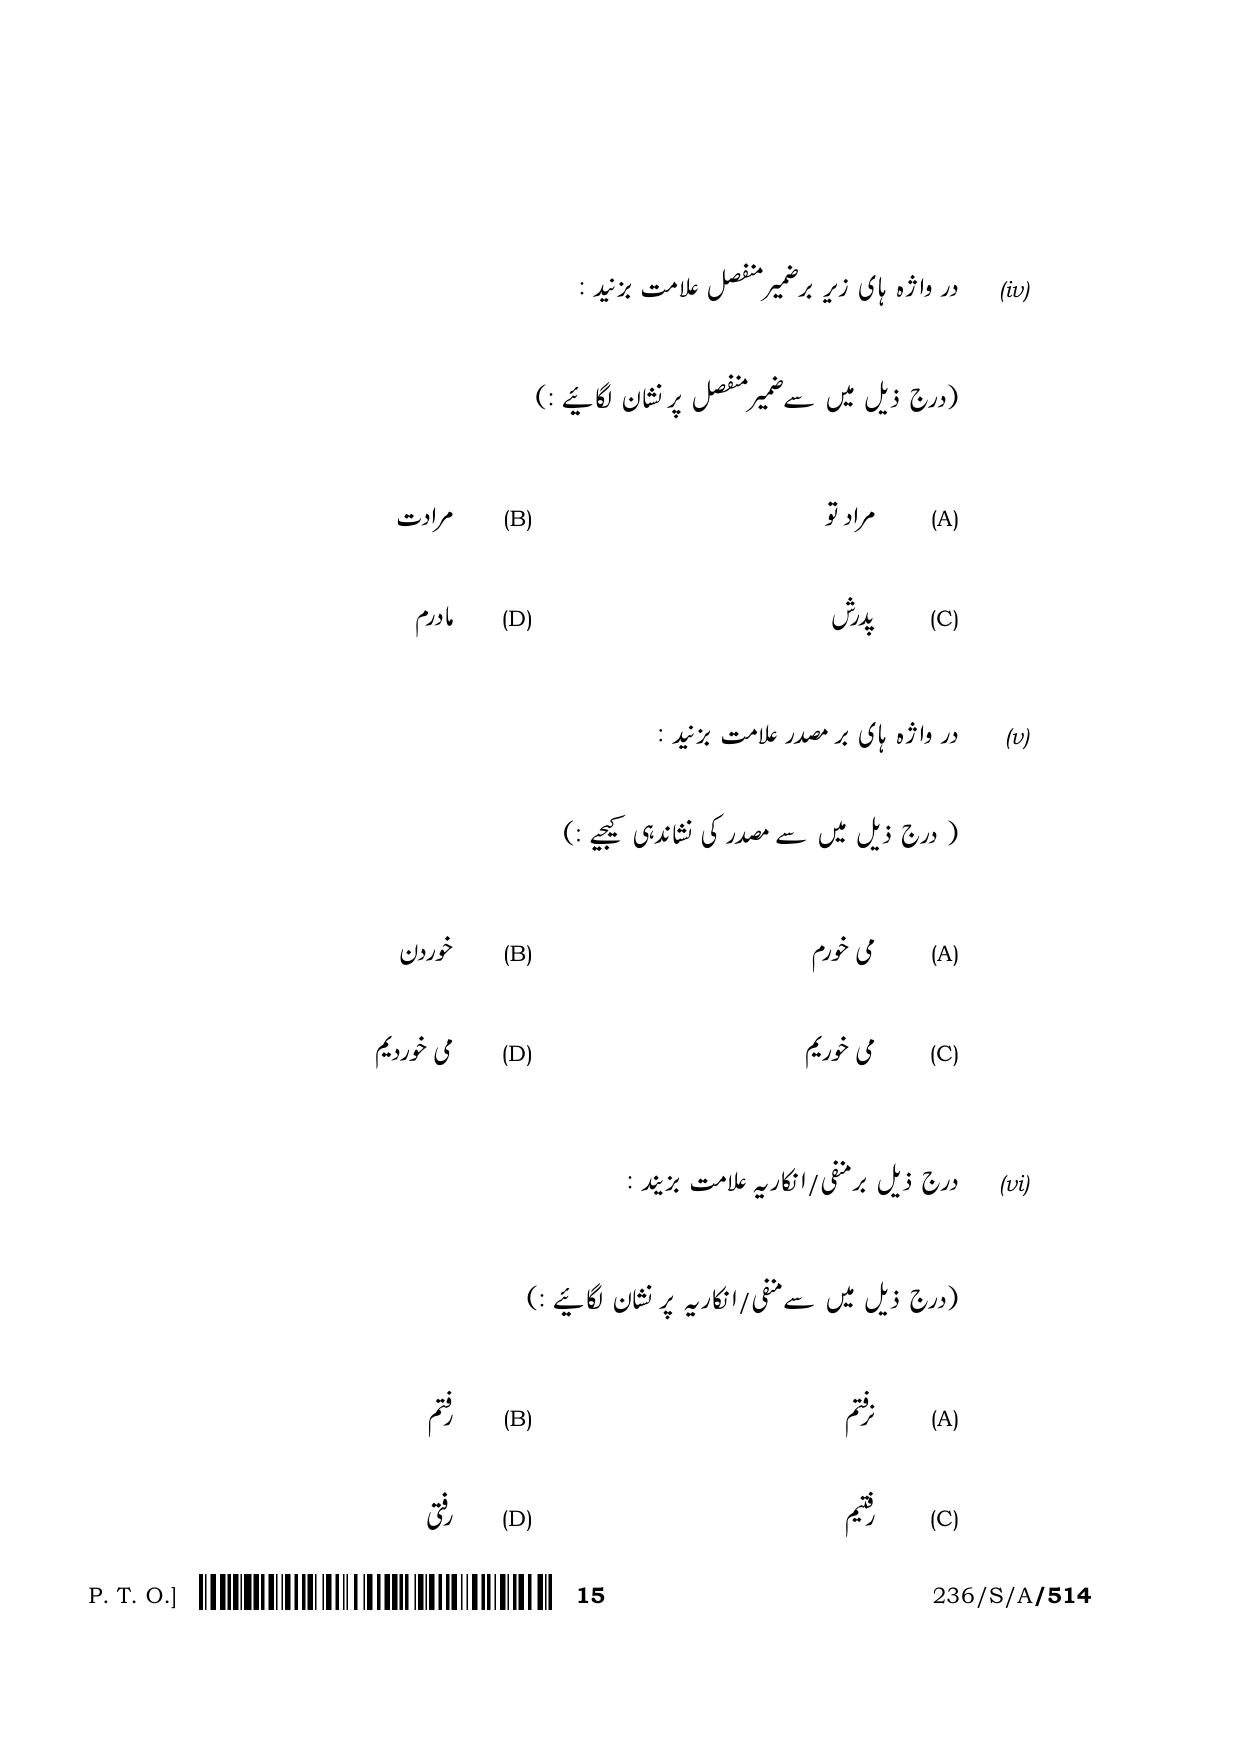 (iv) در واژه ہای زیر برضمیرمنفصل علامت بزنید :
(درج ذیل میں سےضمیرمنفصل پر نشان لگائیے :)
(A) مراد تو (B) مرادت
(C) پدرش (D) مادرم
(v) در واژه ہای بر مصدر علامت بزنید :
( درج ذیل میں سے مصدر کی نشاندہی کیجیے :)
(A) می خورم (B) خوردن
(C) می خوریم (D) می خوردیم
(vi) درج ذیل برمنفی/انکاریہ علامت بزیند :
(درج ذیل میں سےمنفی/انکاریہ پر نشان لگائیے :)
(A) نرفتم (B) رفتم
(C) رفتیم (D) رفتی
P. T. O.] 15 236/S/A/514